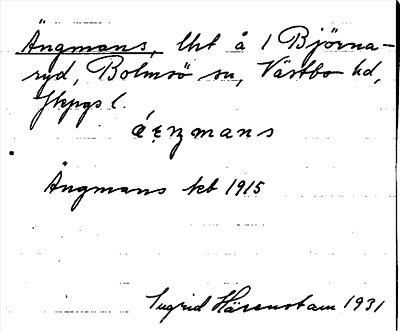 Ängmans, lht å 1 Björna-
ryd, Bolmsö sn, Västbo hd,
Jkpgs l.
Ängmans kb 1915
Ingrid Härenstam 1931